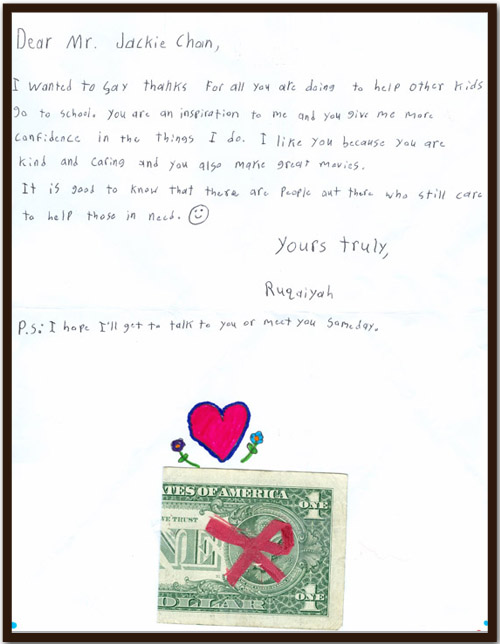 Dear Mr. Jackie Chan,
I wanted to say thanks for all you are doing to help other kids
go to school. You are an inspiration to me and you give me more
confidence in the things I do. I like you because you are
kind and caring and you also make great movies.
It is good to know that there are people out there who still care
to help those in need.
Yours truly,
Ruqaiyah
P.S.: I hope I'll get to talk to you or meet you someday.
ATES OF AMERICA
1
ONE
WE TRUST
NE
DOLLAR
1
ONE